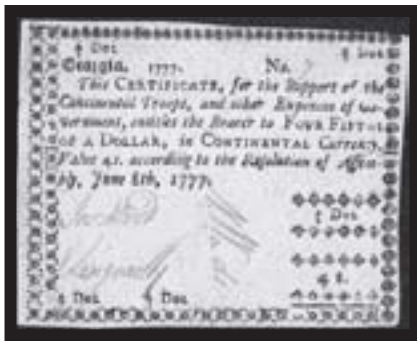 ⅘ Dol. ⅘ Dol.
Georgia. 1777. No.
This CERTIFICATE, for the Support of the
Continental Troops, and other Expences of Go-
vernment, entitles the Bearer to FOUR FIFTHS
OF A DOLLAR, in CONTINENTAL CURRENCY,
Value 4s. according to the Resolution of Assem-
bly, June 8th, 1777.
Dol.
4 s.
Dol. Dol.